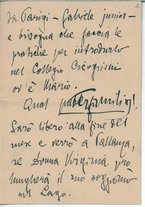 da Parigi - Gabriele junior -
e bisogna che faccia le
pratiche per introdurlo
nel Collegio Cicognini
ov'è Mario.
Qual paterfamilias!
Sarò libero alla fine del
mese e verrò a Pallanza,
se Donna Virginia pro
lungherà il suo soggiorno
sul Lago.